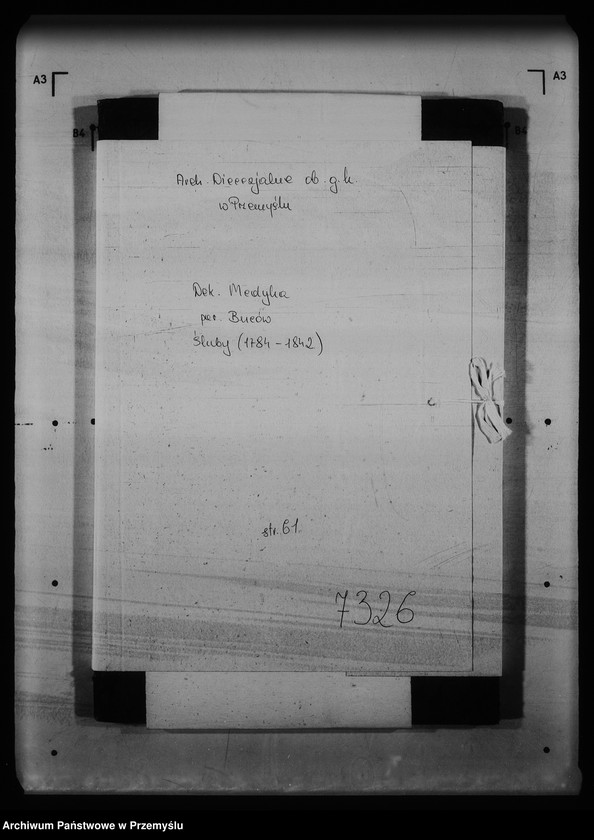 A3
A3
B4
B4
Arch. Diecezjalne ob. g.k
w Przemyślu
Dek. Medyka
par. Buców
Śluby (1784-1842)
str. 61
7326
Archiwum Państwowe w Przemyślu